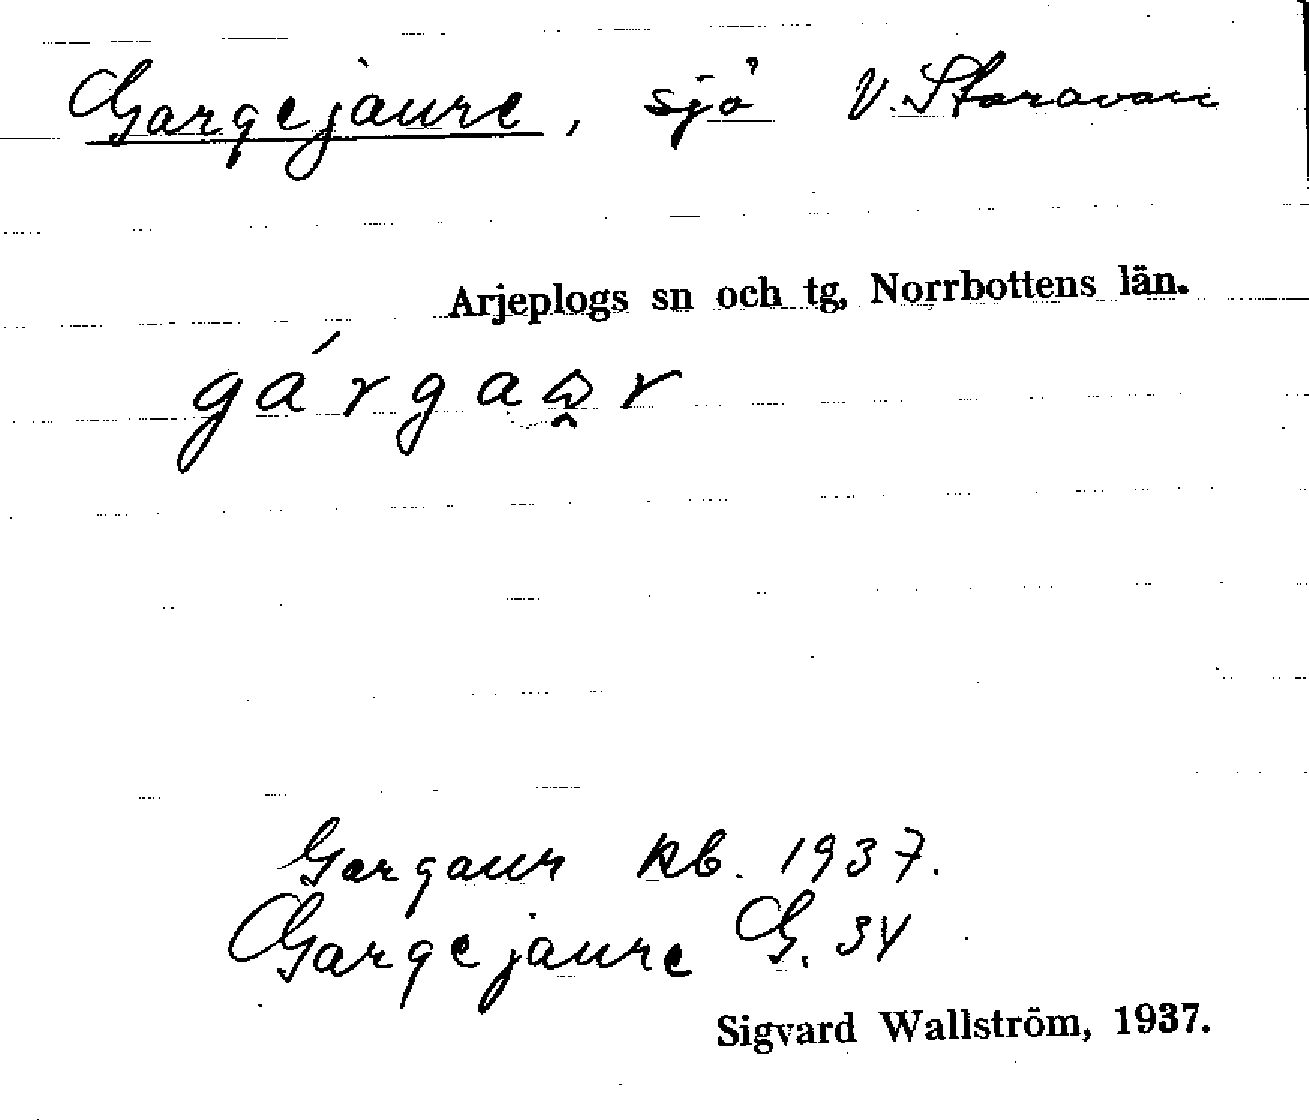 Gargejaure, sjö V. Storavan
Arjeplogs sn och tg, Norrbottens län.
gárgaω̯r
Gargaur kb. 1937.
Gargejaure G. 34
Sigvard Wallström, 1937.